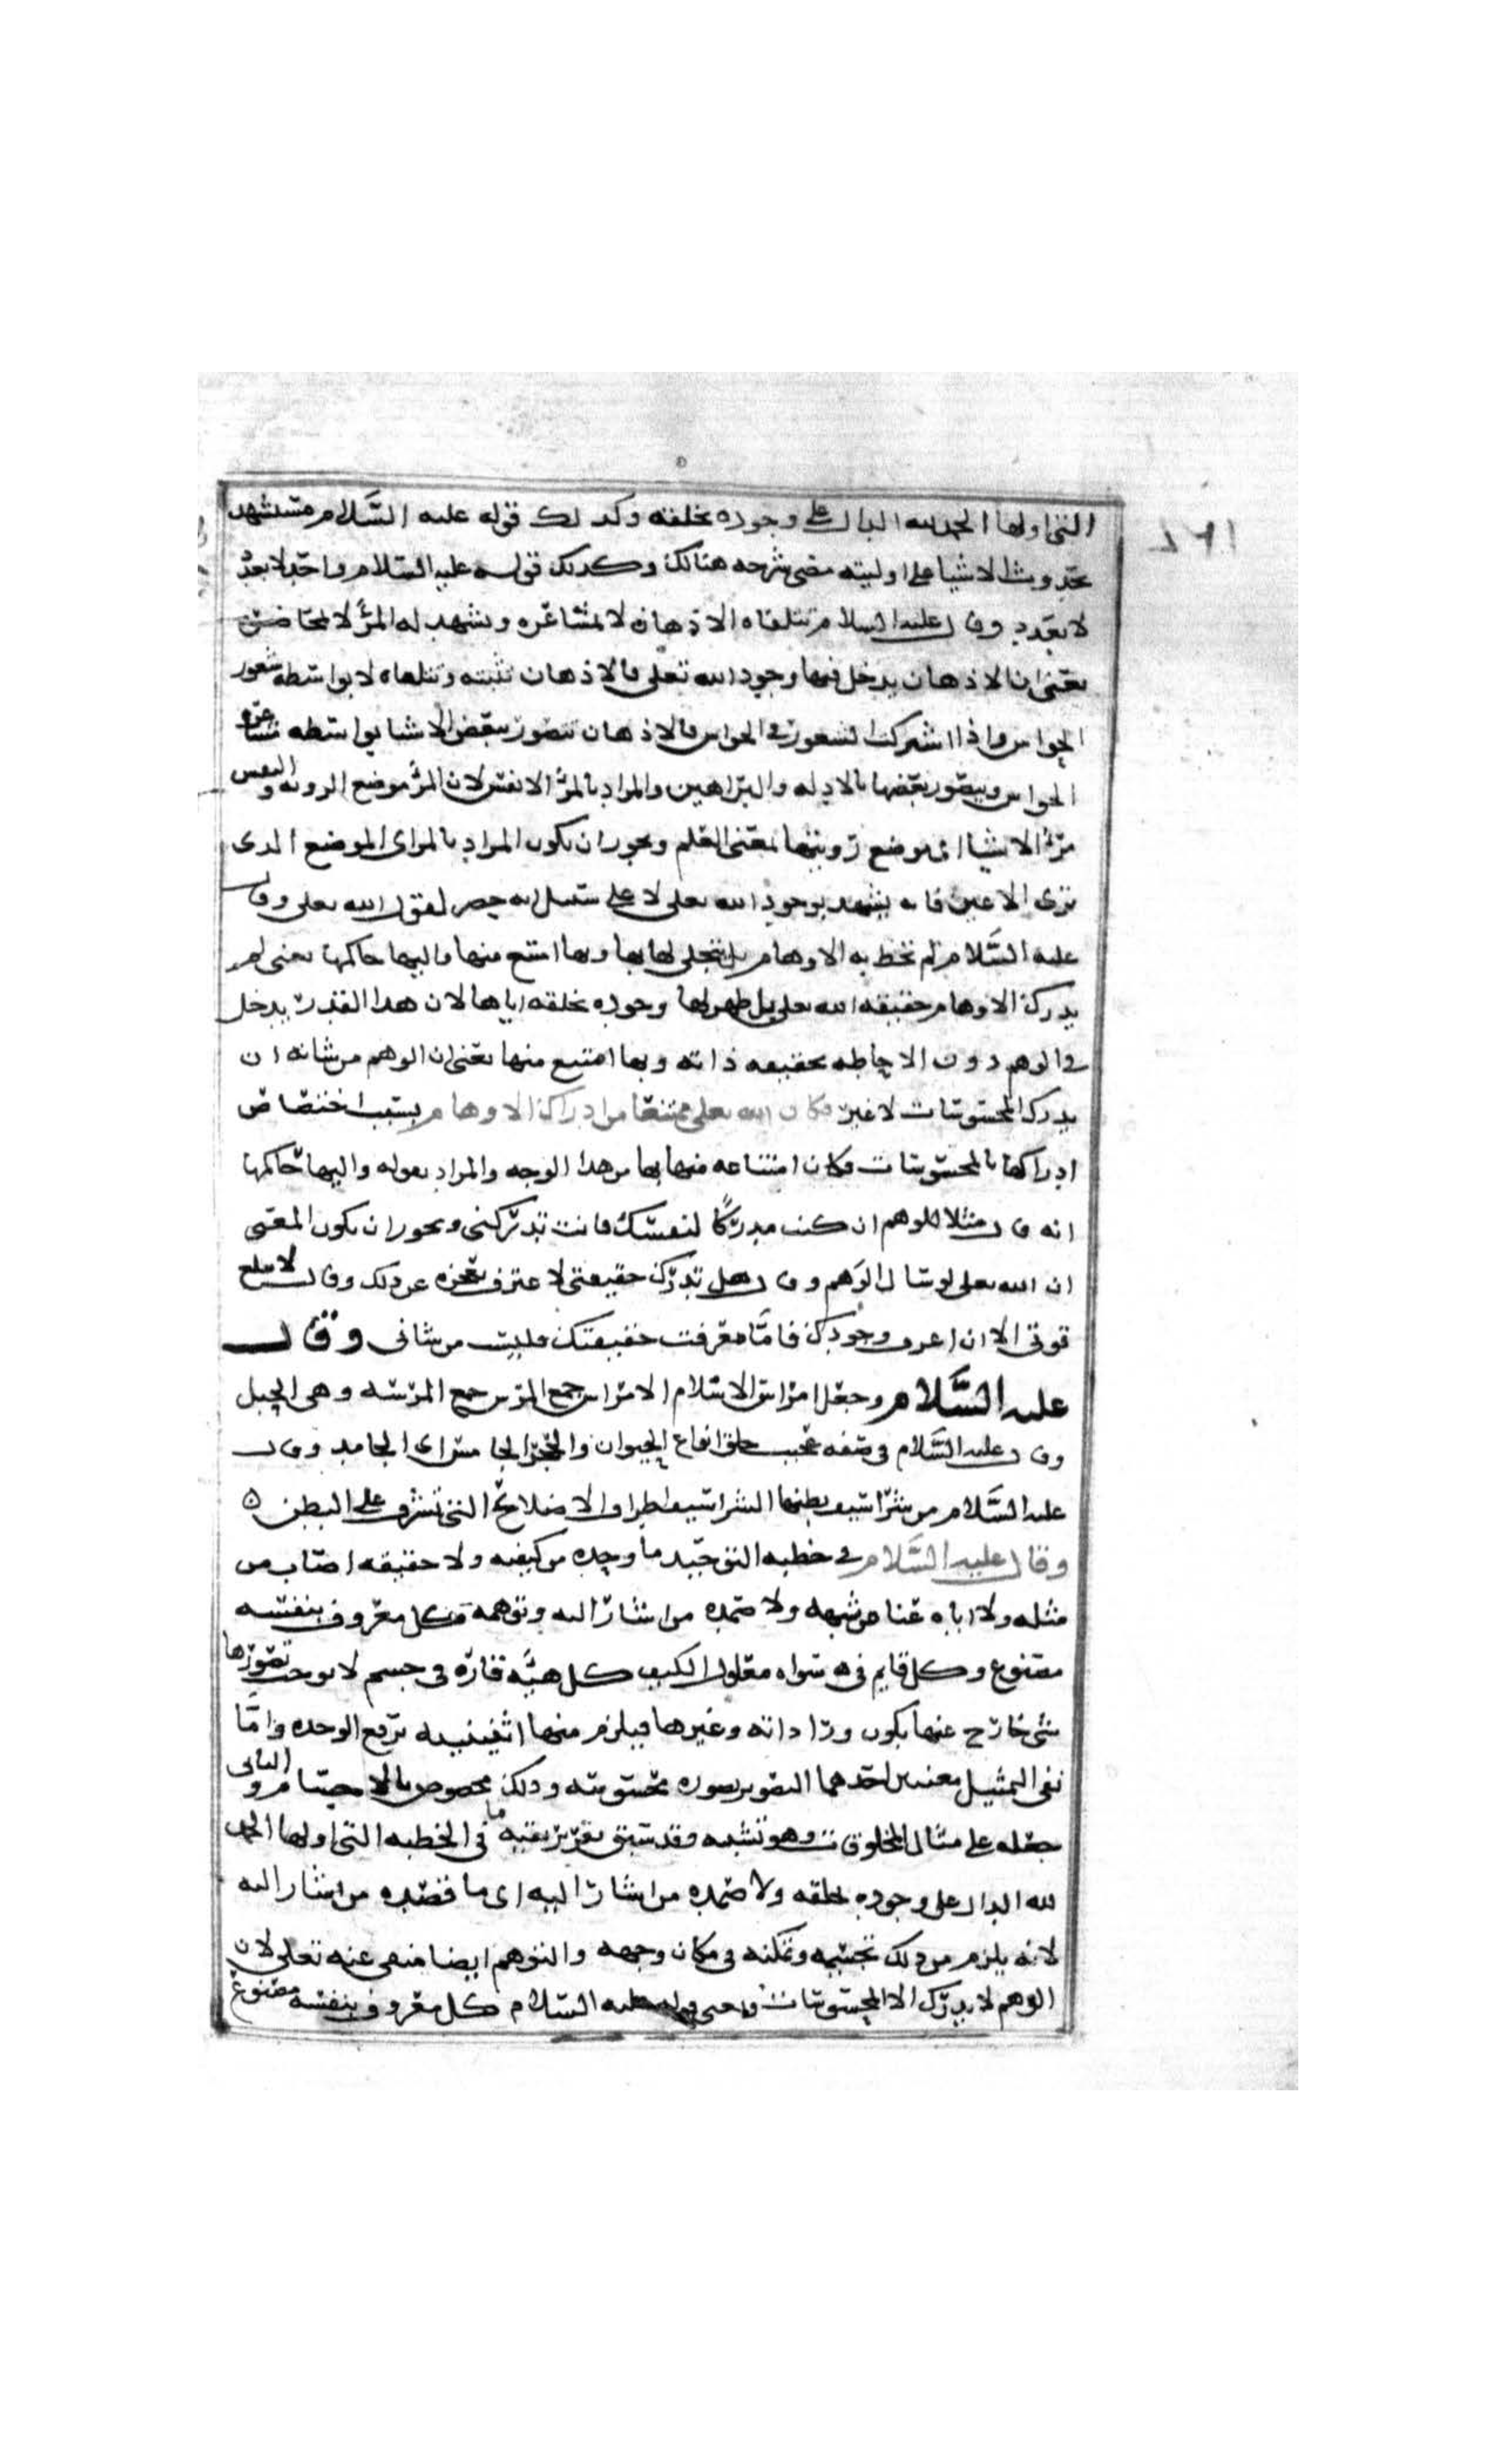 التي اولها الحمد لله الدال على وجوده بخلقه وكذلك قوله عليه السَّلام مستشهد
بحدوث الاشيا على اوليته مضى شرحه هنالك وكذلك قوله عليه السلام واحد لا بعدد
لا بعدد وقال عليه السلام تتلقاه الاذهان لا بمشاعره وتشهد له المرأى لا بمحاضرة
يعني ان الاذهان يدخل فيها وجود الله تعلى فالاذهان تثبته وتتلقاه لا بواسطه شعور
الحواس واذا اشتركت الشعور في الحواس فالاذهان تتصور بعض الاشيا بواسطه مشاعره
الحواس ويتصور بعضها بالادله والبراهين والمراد بالمرأ الانفس لان المرأ موضع الرويه والنفس
مرأ الاشيا اي موضع رويتها بمعنى العلم ويجوز ان يكون المراد بالمراى الموضع الدى
ترى الاعين فانه يشهد بوجود الله تعلى لا على سبيل انه حضر لقول الله تعلى وقال
عليه السَّلام لم تحط به الاوهام بل تجلى لها بها وبها امتنع منها واليها حاكمها يعنى لم
يدرك الاوهام حقيقه الله تعلى بل ظهر لها وجوده بخلقه اياها لان هدا القدر يدخل
في الوهم دون الاحاطه بحقيقه ذاته وبها امتنع منها يعني ان الوهم من شانه ان
يدرك المحسوسات لا غير فكان الله تعلى ممتنعا من ادراك الاوهام بسبب اختصاص
ادراكها بالمحسوسات فكان امتناعه منها بها من هدا الوجه والمراد بقوله واليها حاكمها
انه قال مثلا للوهم ان كنت مدركًا لنفسك فانت تدركني ويجوز ان يكون المعنى
ان الله تعلى لو سال الوهم وقال هل تدرك حقيقتي لاعترف بعجزه عن ذلك وقال لا يبلغ
قوتي الا ان اعرف وجودك فامَّا معرفت حقيقتك فليست من شاني وقال
عليه السَّلام وجعل امراس الاسلام الامراس جمع المرس جمع المرسه وهى الحبل
وقال عليه السَّلام في صفه عجيب خلق انواع الحيوان والحجر الجامس اى الجامد وقال
عليه السَّلام من شراسيف بطنها الشراسيف اطراف الاضلاع التي تشرف على البطن ٥
وقال عليه السَّلام في خطبه التوحيد ما وحده من كيفه ولا حقيقه اصاب من
مثله ولا اياه عنا من شبهه ولا صمده من اشار اليه وتوهمه كل معروف بنفسه
مصنوع وكل قايم في سواه معلول الكيف كل هيَّه قارّه في جسم لا يوجب تصورها
شى خارج عنها يكون ورا داته وغيرها فيلزم منها اثنينيه ترفع الوحده وامَّا
نفى التمثيل معنيين احدهما التصوير بصوره محسوسه ودلك مخصوص بالاجسام والثاني
جعله على مثال المخلوقات وهو تشبيه وقد سبق تقرير نفيه ما في الخطبه التي اولها الحمد
لله الدال على وجوده بخلقه ولا صمده من اشار اليه اى ما قصده من اشار اليه
لانه يلزم من دلك تجسيمه وتمكنه في مكان وجهه والتوهم ايضا منفى عنه تعلى لان
الوهم لا يدرك الا المحسوسات ومعنى قوله عليه السَّلام كل معروف بنفسه مصنوع